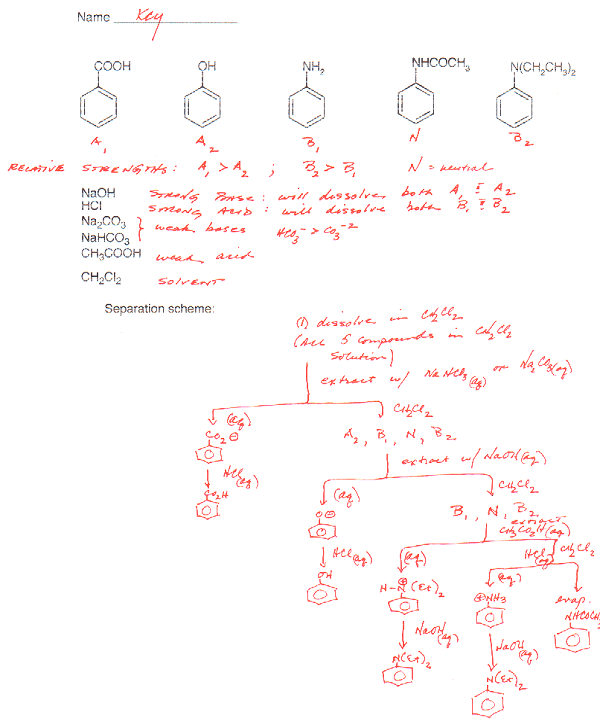 Name Key
COOH OH NH₂ NHCOCH₃ N(CH₂CH₃)₂
A₁ A₂ B₁ N B₂
RELATIVE STRENGTHS: A₁ > A₂ ; B₂ > B₁ N = neutral
NaOH STRONG BASE: will dissolve both A₁ & A₂
HCl STRONG ACID: will dissolve both B₁ & B₂
Na₂CO₃
NaHCO₃ } weak bases HCO₃⁻ > CO₃⁻²
CH₃COOH weak acid
CH₂Cl₂ SOLVENT
Separation scheme:
(1) dissolve in CH₂Cl₂
(All 5 compounds in CH₂Cl₂
solution)
extract w/ NaHCO₃(aq) or Na₂CO₃(aq)
(aq) CH₂Cl₂
CO₂⊖ A₂, B₁, N, B₂
HCl(aq) extract w/ NaOH(aq)
CO₂H (aq) CH₂Cl₂
O⊖ B₁, N, B₂
extract
CH₃CO₂H(aq)
HCl(aq) (aq) HCl(aq) CH₂Cl₂
OH H-N⊕(Et)₂ (aq) ⊕NH₃ evap.
NHCOCH₃
NaOH(aq) NaOH(aq)
N(Et)₂ N(Et)₂